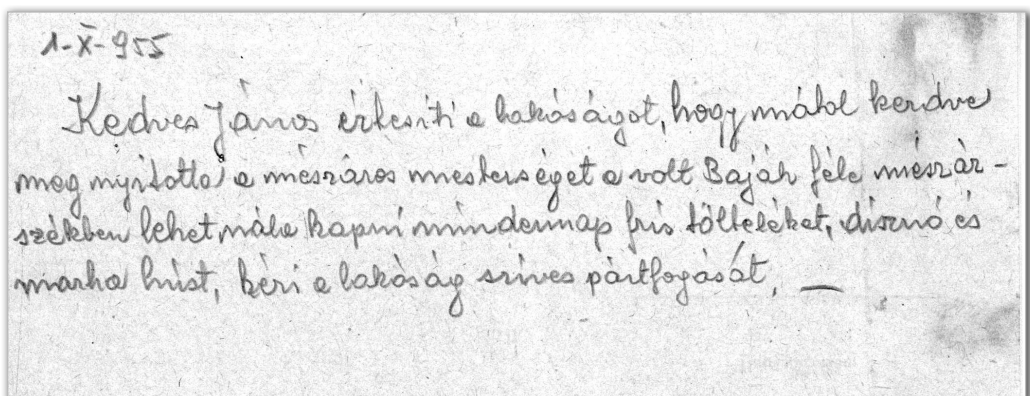 1-X-955
Kedves János értesiti a lakóságot, hogy mátol kerdve
meg nyitotta a mészáros mesterséget a volt Baják féle mészár-
székben lehet nála kapni mindennap fris tölteléket, disznó és
marha húst, kéri a lakóság szives pártfogását, —